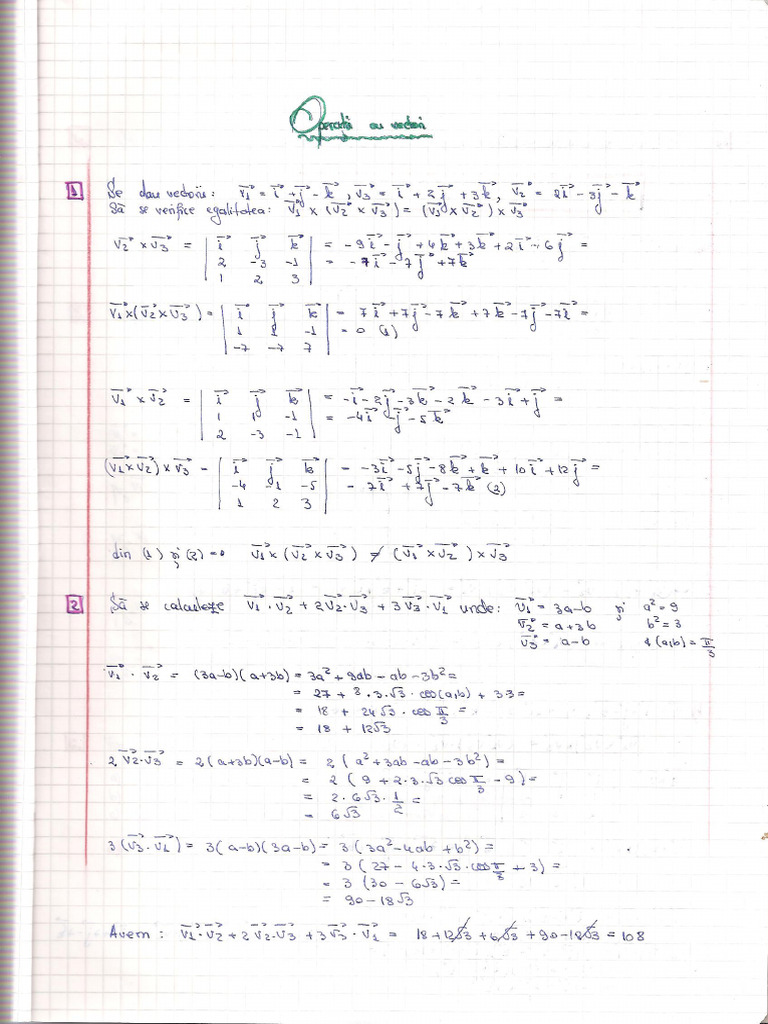 Operații cu vectori
1 Se dau vectorii: v1 = i + j - k, v3 = i + 2j + 3k, v2 = 2i - 3j - k
Să se verifice egalitatea: v1 × (v2 × v3) = (v1 × v2) × v3
v2 × v3 = | i j k | = -9i - j + 4k + 3k + 2i - 6j =
| 2 -3 -1 | = -7i - 7j + 7k
| 1 2 3 |
v1 × (v2 × v3) = | i j k | = 7i + 7j - 7k + 7k - 7j - 7i =
| 1 1 -1 | = 0 (1)
| -7 -7 7 |
v1 × v2 = | i j k | = -i - 2j - 3k - 2k - 3i + j =
| 1 1 -1 | = -4i - j - 5k
| 2 -3 -1 |
(v1 × v2) × v3 = | i j k | = -3i - 5j - 8k + k + 10i + 12j =
| -4 -1 -5 | = 7i + 7j - 7k (2)
| 1 2 3 |
din (1) și (2) => v1 × (v2 × v3) ≠ (v1 × v2) × v3
2 Să se calculeze v1 · v2 + 2v2 · v3 + 3v3 · v1 unde: v1 = 3a-b și a² = 9
v2 = a+3b b² = 3
v3 = a-b ∢(a,b) = π/3
v1 · v2 = (3a-b)(a+3b) = 3a² + 9ab - ab - 3b² =
= 27 + 8·3·√3 · cos(a,b) + 33 =
= 18 + 24√3 · cos π/3 =
= 18 + 12√3
2v2·v3 = 2(a+3b)(a-b) = 2(a² + 3ab - ab - 3b²) =
= 2(9 + 2·3·√3 cos π/3 - 9) =
= 2·6√3 · 1/2 =
= 6√3
3(v3·v1) = 3(a-b)(3a-b) = 3(3a² - 4ab + b²) =
= 3(27 - 4·3·√3·cos π/3 + 3) =
= 3(30 - 6√3) =
= 90 - 18√3
Avem: v1·v2 + 2v2·v3 + 3v3·v1 = 18 + 12√3 + 6√3 + 90 - 18√3 = 108